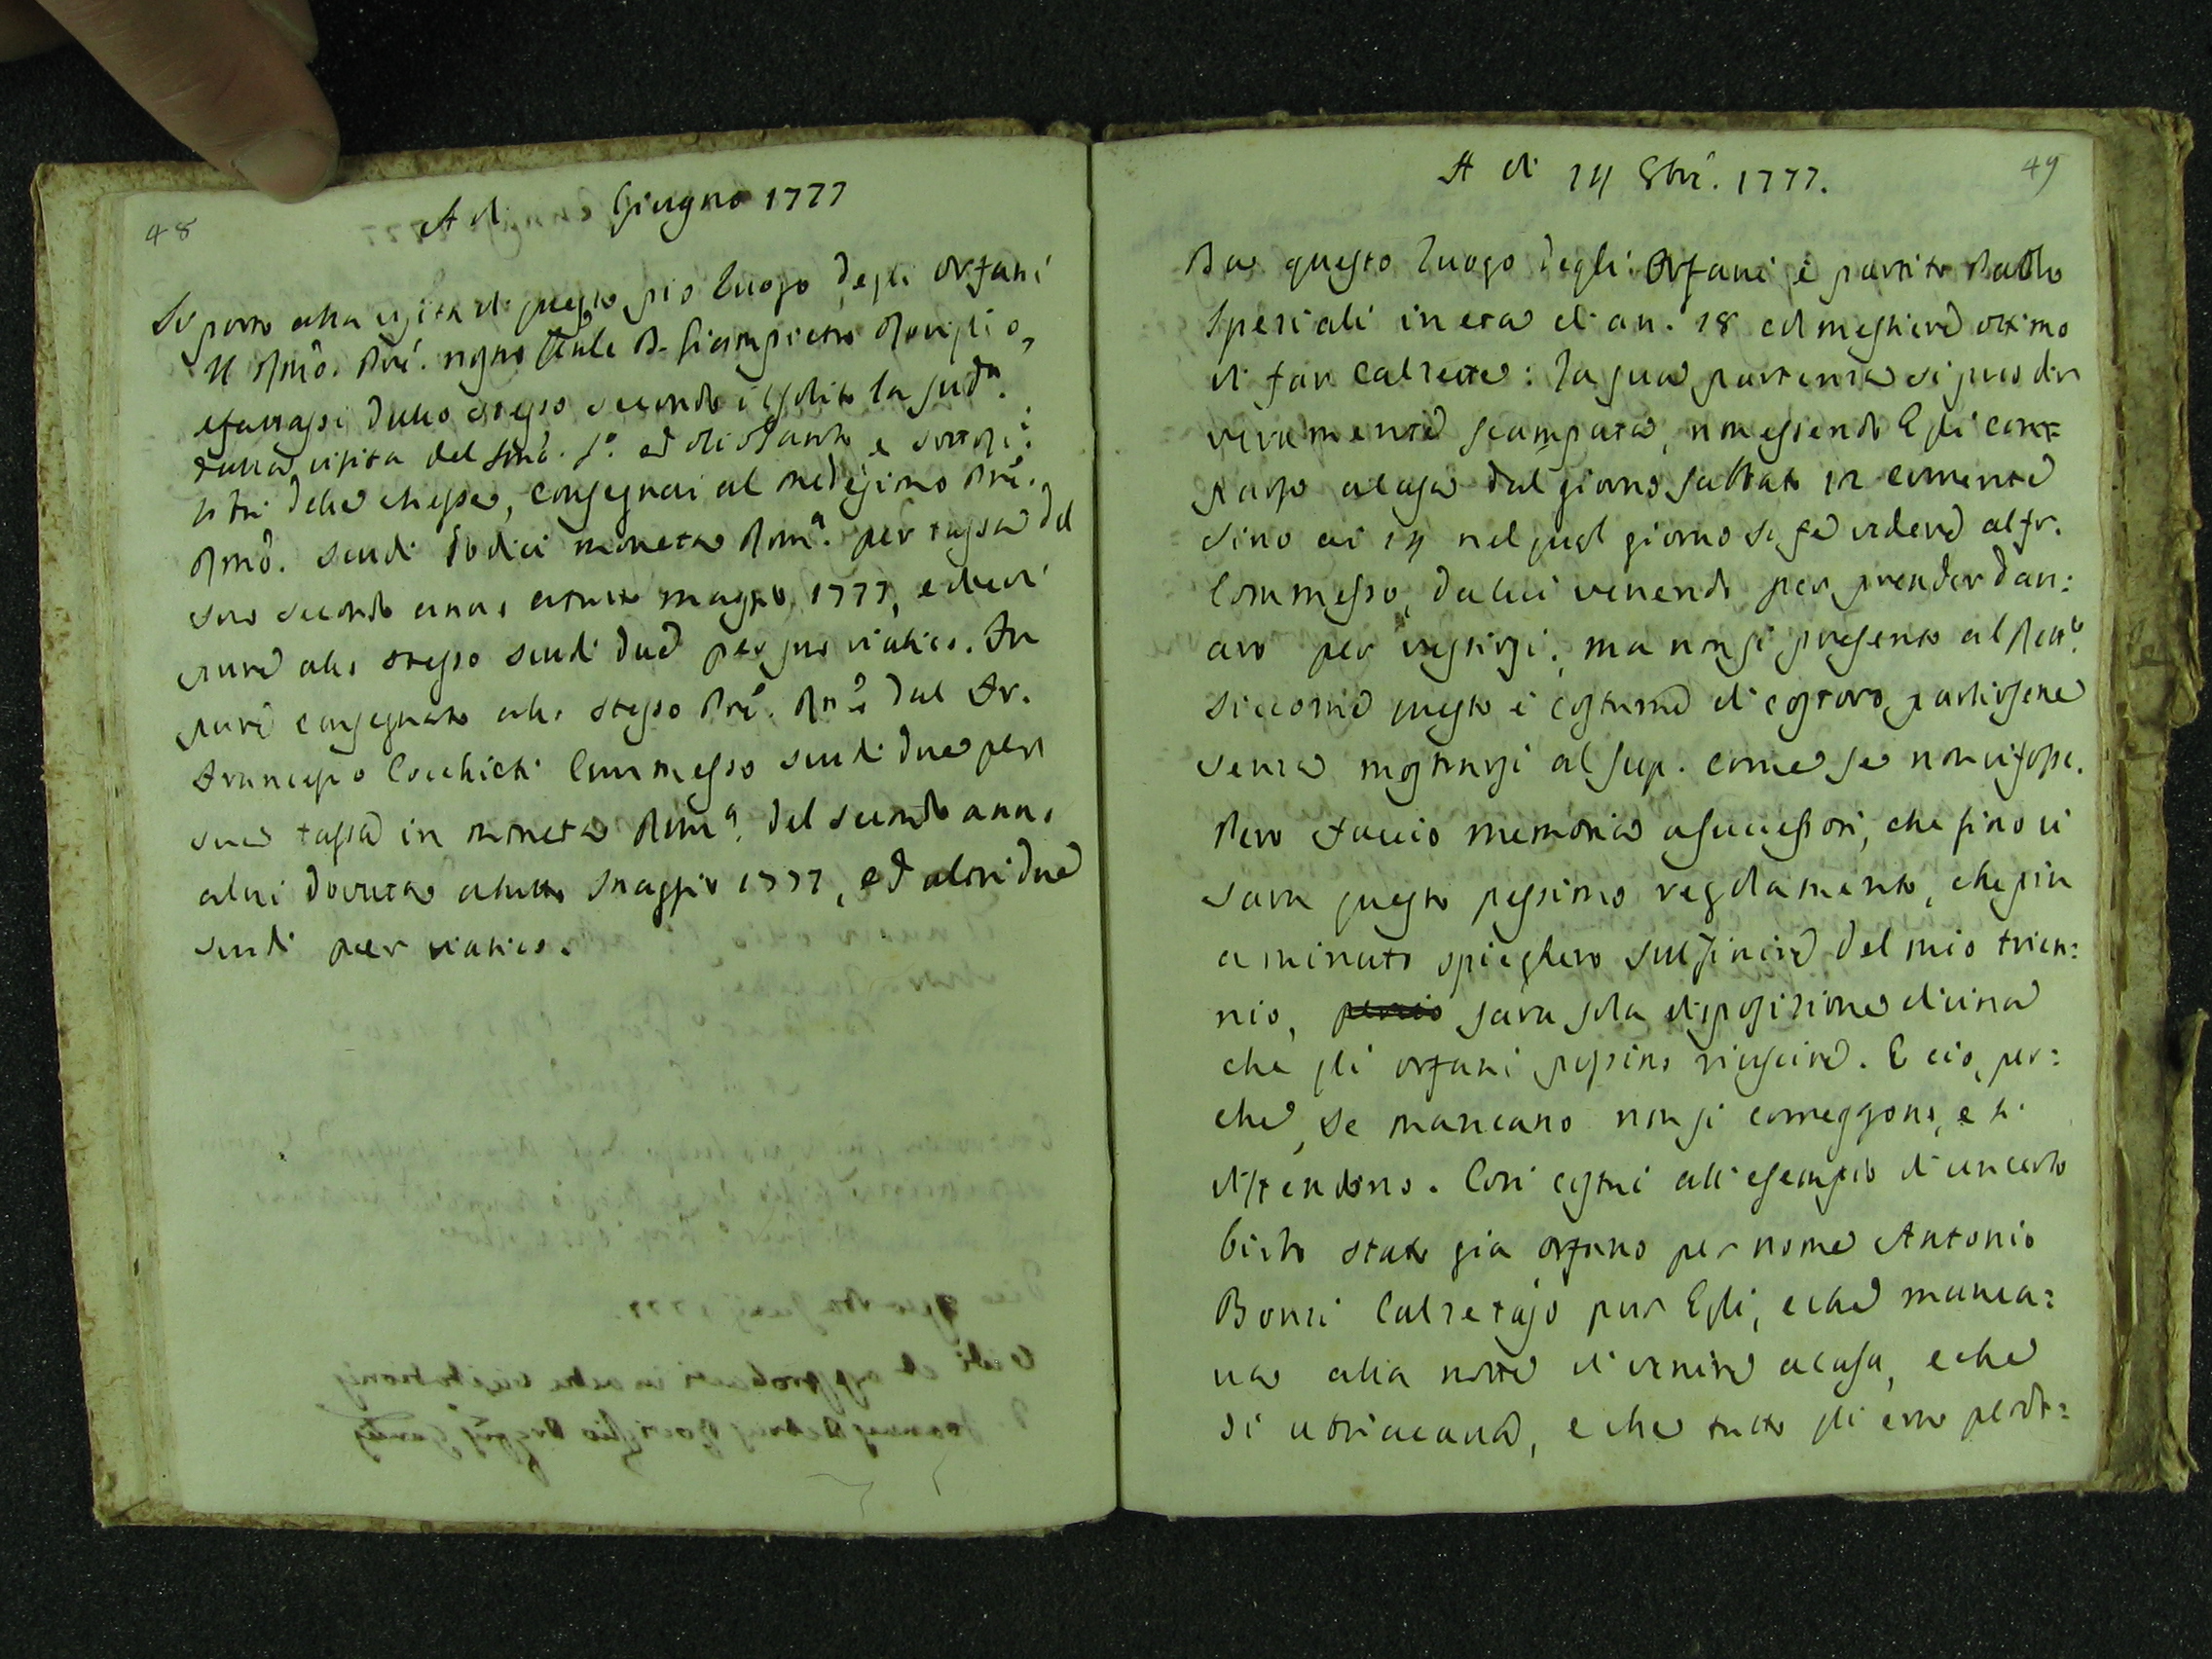 48
A di Giugno 1777
Si portò alla visita di questo pio luogo degli orfani
Il Rmo. Pré. nostro Gnle D. Giampietro Roviglio,
e fattasi dallo stesso secondo il solito la sud.a
visita del e
libri della chiesa, consegnai al medesimo Pré.
Rmo. scudi dodici moneta Rom.a per tassa del
suo secondo anno a tutto maggio 1777, e diedi
pure allo stesso scudi due per suo viatico. Fu
pure consegnato allo stesso Pré. Rmo dal Fr.
Francesco Cocchichi Commesso scudi due per
sua tassa in moneta Rom.a del secondo anno
a lui dovuta a tutto Maggio 1777, ed altri due
scudi per viatico.
49
A di 14 8bre. 1777.
Da questo luogo degli Orfani è partito Paolo
Speziali in età di an. 18 col mestiere ottimo
di far calzette: la sua partenza si può dir
veramente scampata, non essendo Egli com=
parso a casa dal giorno sabbato 12 corrente
sino ai 14 nel qual giorno si fe vedere al fr.
Commesso, da lui venendo per prender dan:
aro per vestirsi, ma non si presentò al Rett.e
Siccome questo è costume di costoro partirsene
senza mostrarsi al sup. come se non vi fosse.
Però faccio memoria a successori, che fino vi
sarà questo pessimo regolamento, che più
a minuto spiegherò sul finire del mio trien:
nio, sarà sola disposizione divina
che gli orfani possino riuscire. E ciò, per:
chè, se mancano non si correggono, e si
difendono. Così costui all'esempio di un certo
birbo stato già orfano per nome Antonio
Bonzi Calzetajo pur Egli, e che manca:
va alla notte di venire a casa, e che
si ubriacava, e che tutto gli era perdo: